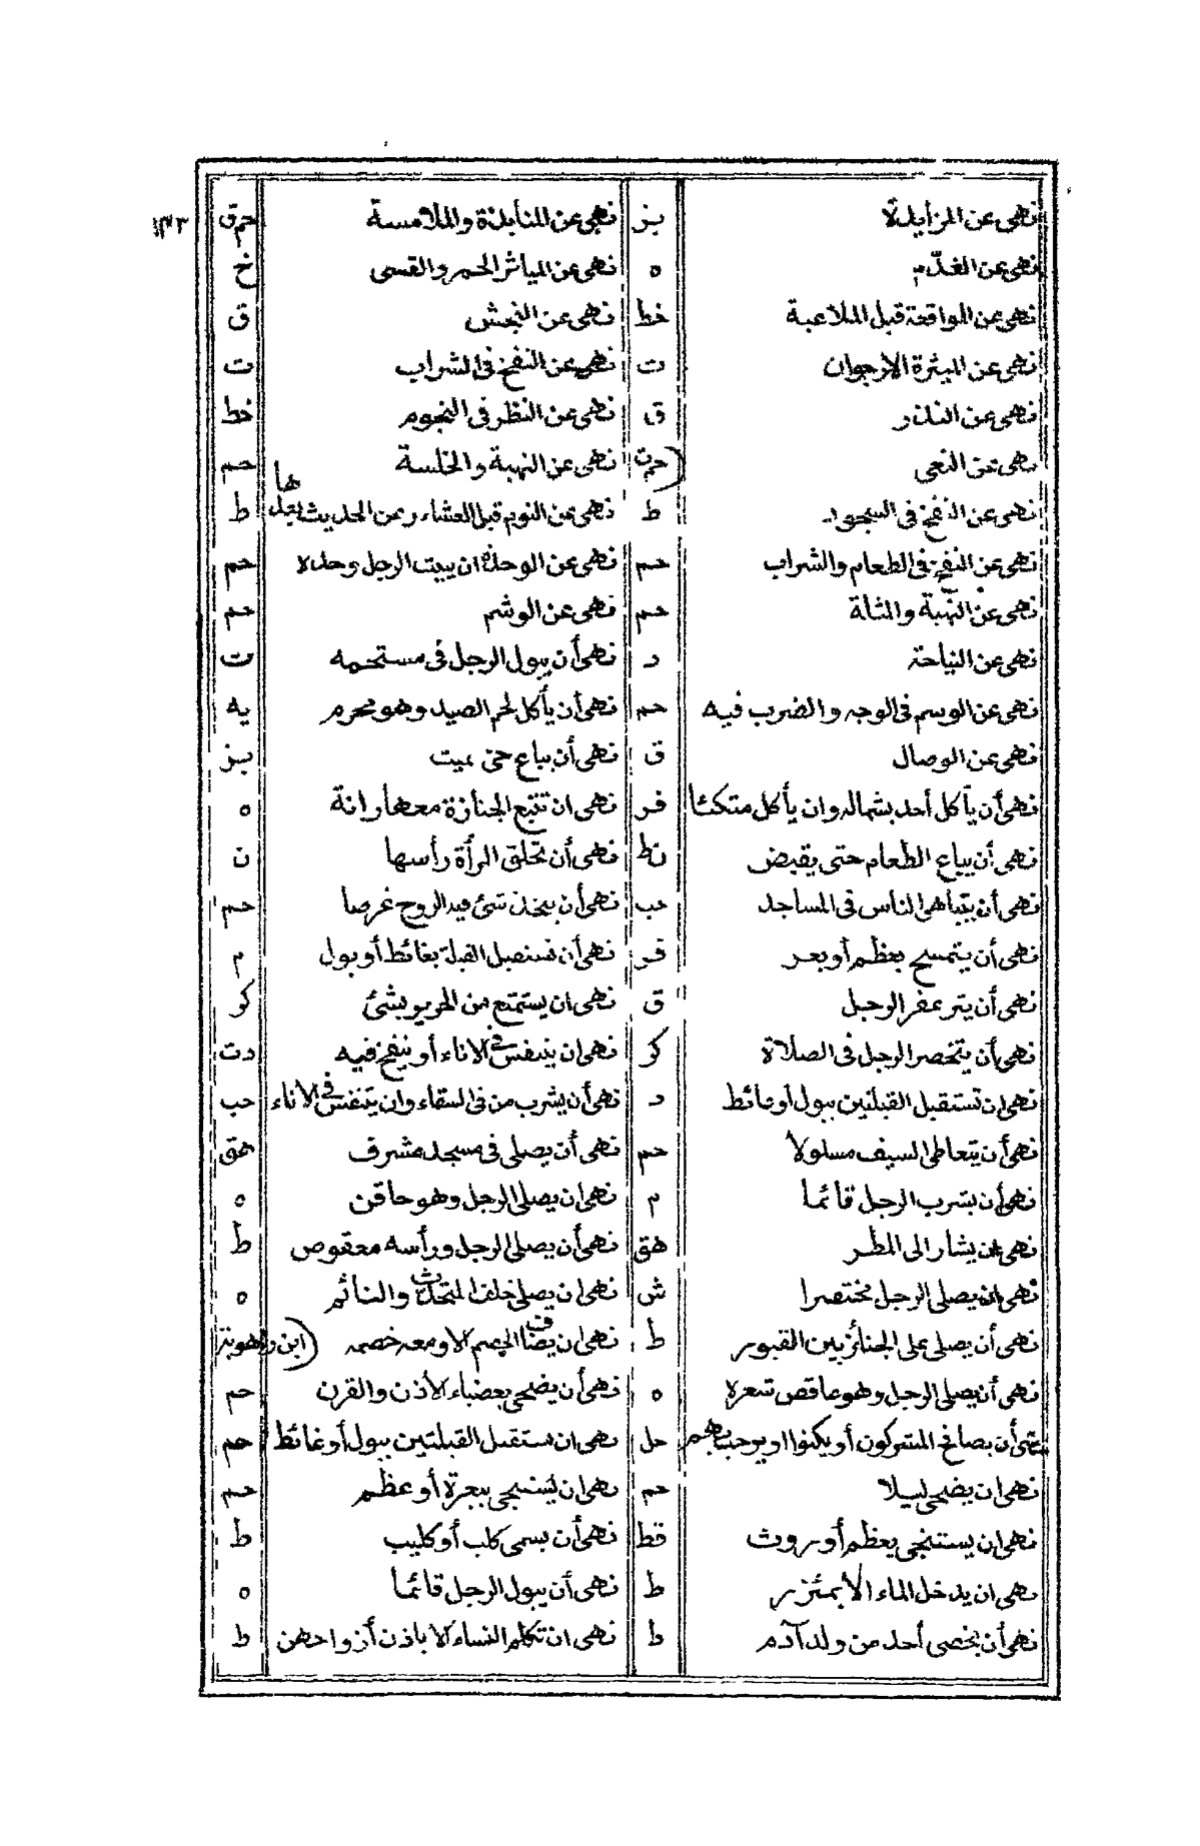 ١٤٣
نهى عن المزايدة بز نهى عن المنابذة والملامسة حم ق
نهى عن المفدم ه نهى عن المياثر الحمر والقسى خ
نهى عن المواقعة قبل الملاعبة خط نهى عن النجش ق
نهى عن الميثرة الارجوان ت نهى عن النفخ فى الشراب ت
نهى عن النذر ق نهى عن النظر فى النجوم خط
نهى عن النعى (حم ت نهى عن النهبة والخلسة حم
نهى عن النفخ فى السجود ط نهى عن النوم قبل العشاء وعن الحديث بعدها ط
نهى عن النفخ فى الطعام والشراب حم نهى عن الوحدة ان يبيت الرجل وحده حم
نهى عن النهبة والمثلة حم نهى عن الوشم حم
نهى عن النياحة د نهى أن يبول الرجل فى مستحمه ت
نهى عن الوسم فى الوجه والضرب فيه حم نهى أن يأكل لحم الصيد وهو محرم يه
نهى عن الوصال ق نهى أن يباع حتى بز
نهى أن يأكل أحد بشماله وان يأكل متكئا فر نهى ان تتبع الجنازة معها رانة ه
نهى أن يباع الطعام حتى يقبض نط نهى أن تحلق المرأة رأسها ن
نهى أن يتباهى الناس فى المساجد حب نهى أن يتخذ شئ فيه الروح غرضا حم
نهى أن يتمسح بعظم أو بعر فر نهى أن نستقبل القبلة بغائط أو بول م
نهى أن يتزعفر الرجل ق نهى ان يستمتع من الحرير بشئ كر
نهى أن يتخصر الرجل فى الصلاة كر نهى ان يتنفس فى الاناء أو ينفخ فيه د ت
نهى ان تستقبل القبلتين ببول أو غائط د نهى أن يشرب من فى السقاء وان يتنفس فى الاناء حب
نهى أن يتعاطى السيف مسلولا حم نهى أن يصلى فى مسجد مشرف هق
نهى أن يشرب الرجل قائما م نهى ان يصلى الرجل وهو حاقن ه
نهى ان يشار الى المطر هق نهى أن يصلى الرجل ورأسه معقوص ط
نهى ان يصلى الرجل مختصرا ش نهى ان يصلى خلف المتحدث والنائم ه
نهى أن يصلى على الجنائز بين القبور ط نهى ان يضاف الخصم الا ومعه خصمه (ابن راهويه
نهى أن يصلى الرجل وهو عاقص شعره ه نهى أن يضحى بعضباء الأذن والقرن حم
نهى أن يصافح المشركون أو يكنوا او يرحب بهم حل نهى ان نستقبل القبلتين ببول أو غائط حم
نهى ان يضحى ليلا حم نهى ان يستنجى ببعرة أو عظم حم
نهى ان يستنجى بعظم أو روث قط نهى أن يسمى كلب أو كليب ط
نهى ان يدخل الماء الا بمئزر ط نهى أن يبول الرجل قائما ه
نهى أن يخصى أحد من ولد آدم ط نهى ان تكلم النساء الا باذن أزواجهن ط